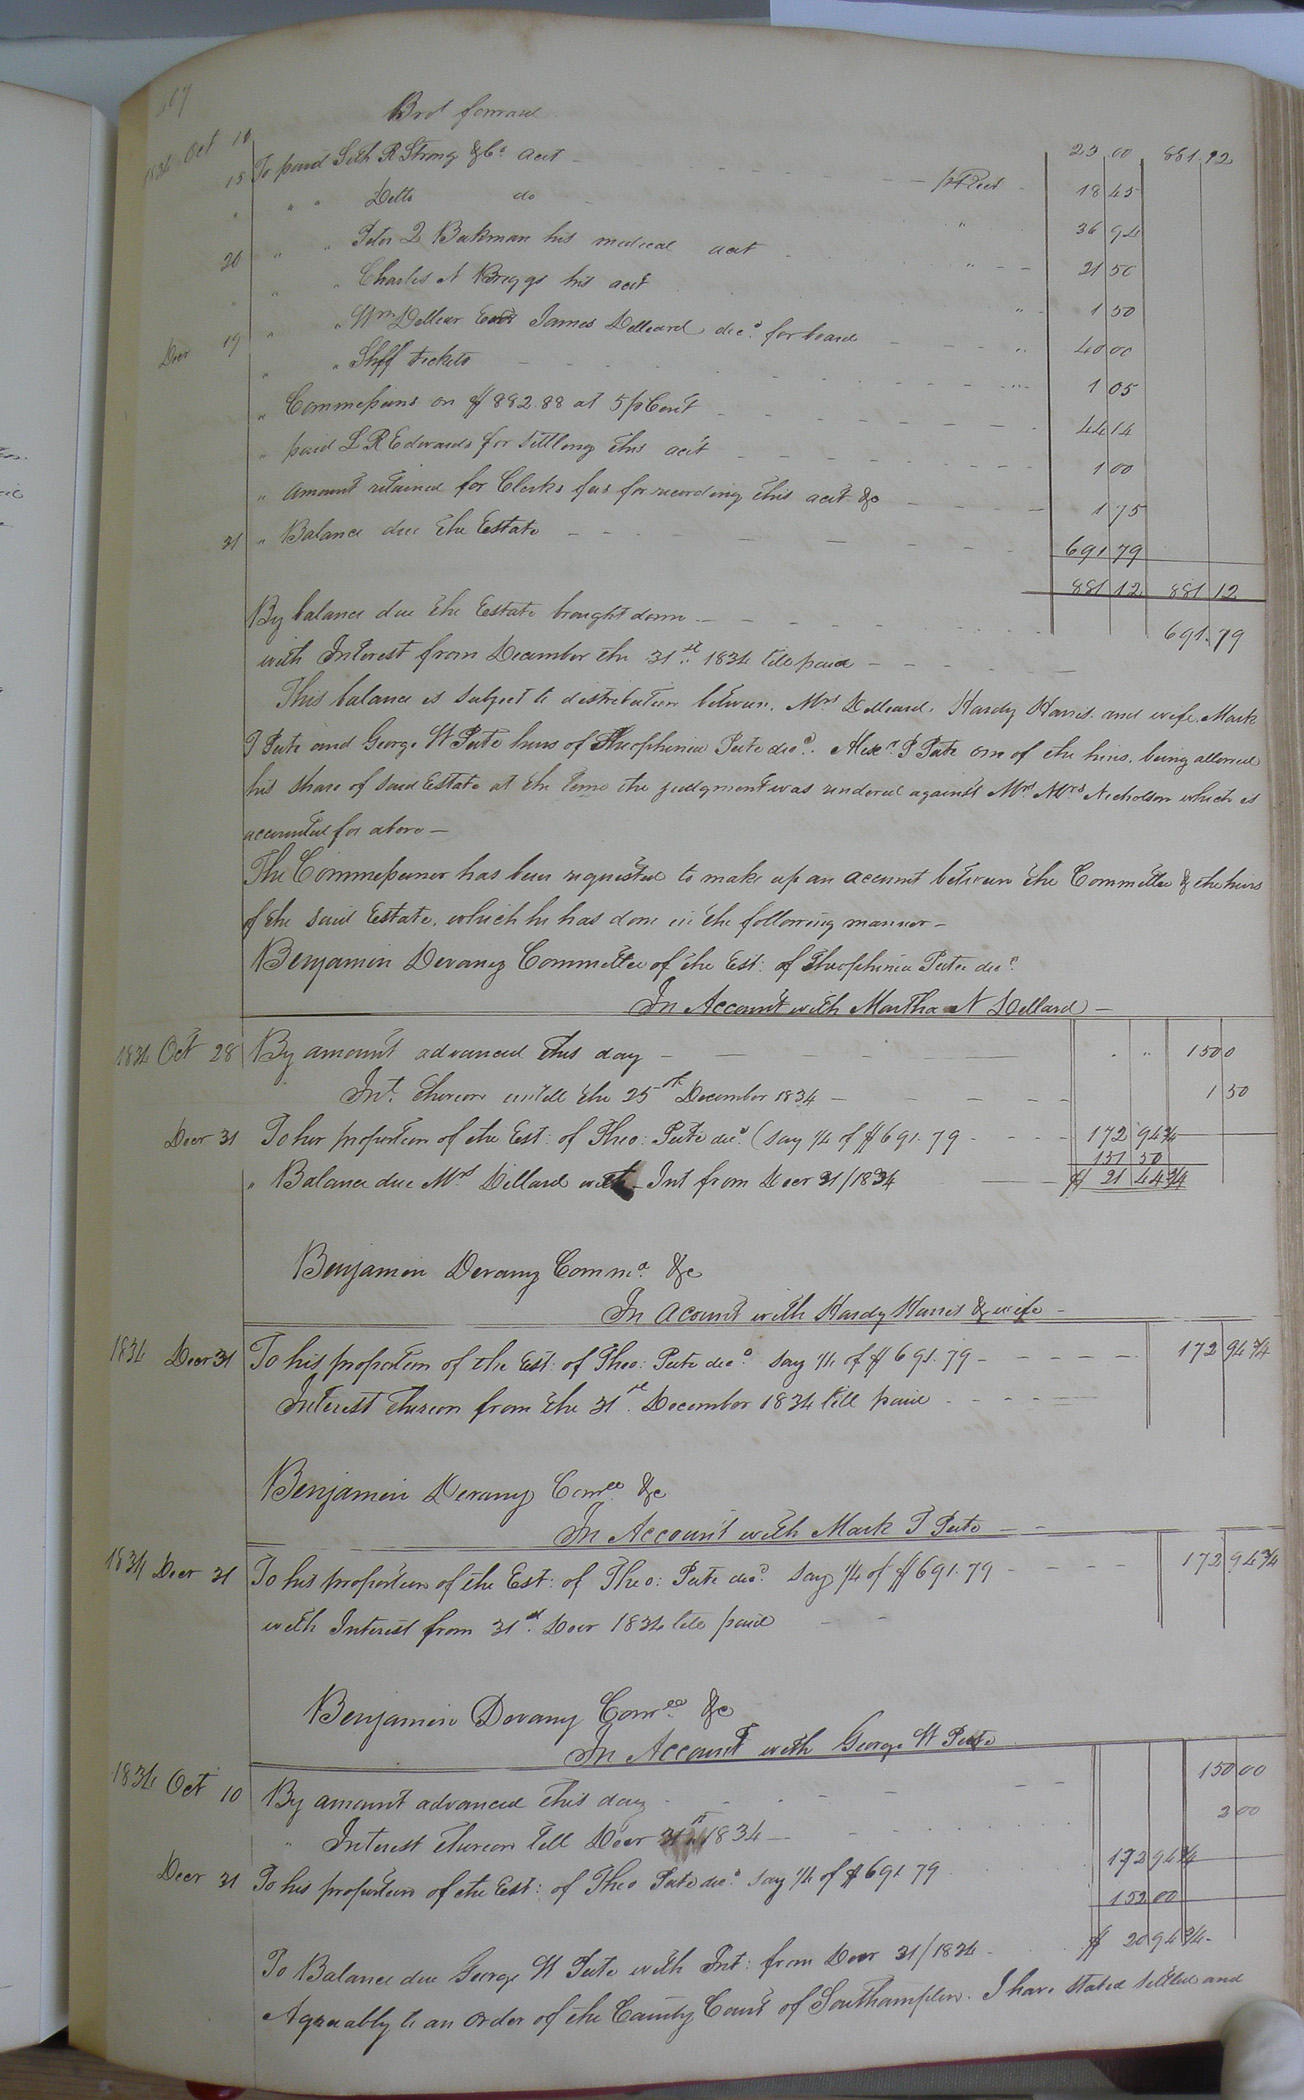 Brot forward
1834 Oct 10 To paid Seth R Strong & Co acct - pr Rect 23 00 881.12
15 " " Ditto do " 18 45
" " Peter Q Beekman his medical acct " 36 94
20 " " Charles A Briggs his acct " 21 50
" " Wm Dillear Exor James Dilleard decd. for board " 1 50
Decr 19 " " Shff tickets " 40 00
" Commissions on $882.88 at 5 pr Cent 1 05
" paid L R Edwards for settling this acct 44 14
" amount retained for Clerks fees for recording this acct &c 1 00
31 " Balance due the Estate 1 75
691 79
881 12 881 12
By balance due the Estate brought down 691.79
with Interest from December the 31st. 1834 till paid
This balance is subject to distribution between. Mrs Dilleard. Hardy Harris. and wife. Mark
T Pete and George W Pete heirs of Theophinia Pete decd. Alexr. P Pete one of the heirs. being allowed
his share of said Estate at the time the judgment was rendered against Mrs Nicholson which is
accounted for above
The Commissioner has been requested to make up an account between the Committee & the heirs
of the said Estate. which he has done in the following manner
Benjamin Devany Committee of the Est: of Theophinia Pete decd.
In Account with Martha N Dillard
1834 Oct 28 By amount advanced this day 150 0
Int. thereon untill the 25th December 1834 1 50
Decr 31 To her proportion of the Est: of Theo: Pete decd. (say 1/4 of $691.79 172 94 3/4
151 50
" Balance due Mrs Dillard with Int from Decr 31/1834 $ 21 44 3/4
Benjamin Devany Comme. &c
In acount with Hardy Harris & wife
1834 Decr 31 To his proportion of the Est: of Theo: Pete decd. say 1/4 of $691.79 172 94 3/4
Interest thereon from the 31st. December 1834 till paid
Benjamin Devany Comee. &c
In Account with Mark T Pete
1834 Decr 31 To his proportion of the Est: of Theo: Pete decd. Say 1/4 of $691.79 172 94 3/4
with Interest from 31st. Decr 1834 till paid
Benjamin Devany Comee. &c
In Account with George W Pete
1834 Oct 10 By amount advanced this day 150 00
" Interest thereon till Decr 31st 1834 2 00
Decr 31 To his proportion of the Est: of Theo Pete decd. say 1/4 of $691 79 172 94 3/4
152 00
To Balance due George W Pete with Int: from Decr 31/1834 $ 20 94 3/4
Agreeably to an order of the County Court of Southampton. I have stated settled and